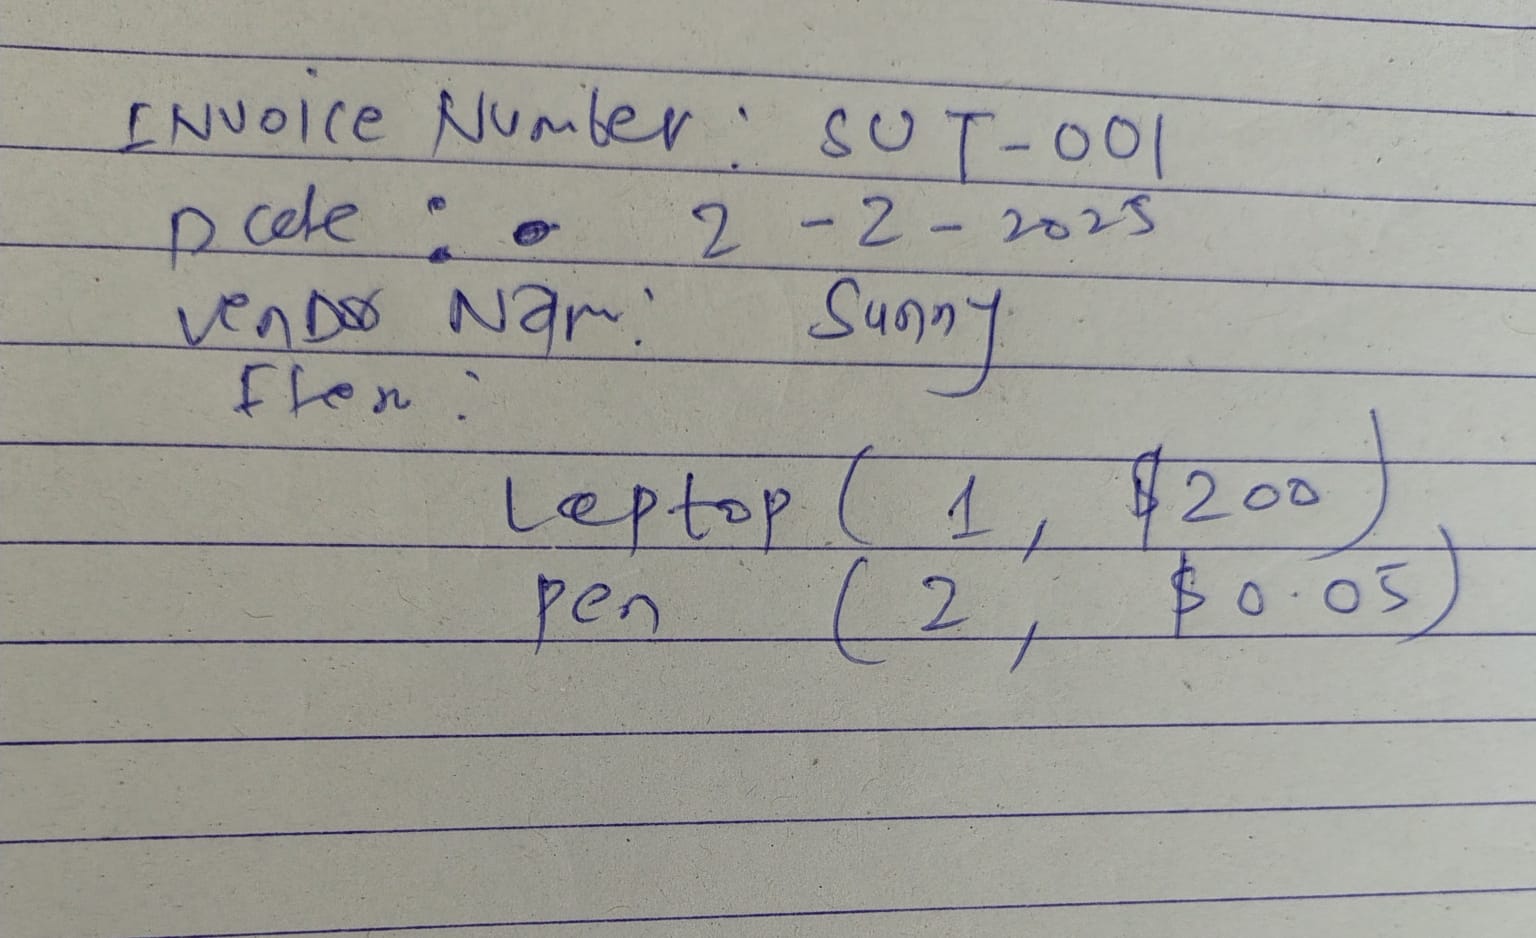 INVOICE Number: SUT-001
Date: 2-2-2025
Vendor Nam:
Sunny
Item:
Laptop (1, $200)
pen (2, $0.05)